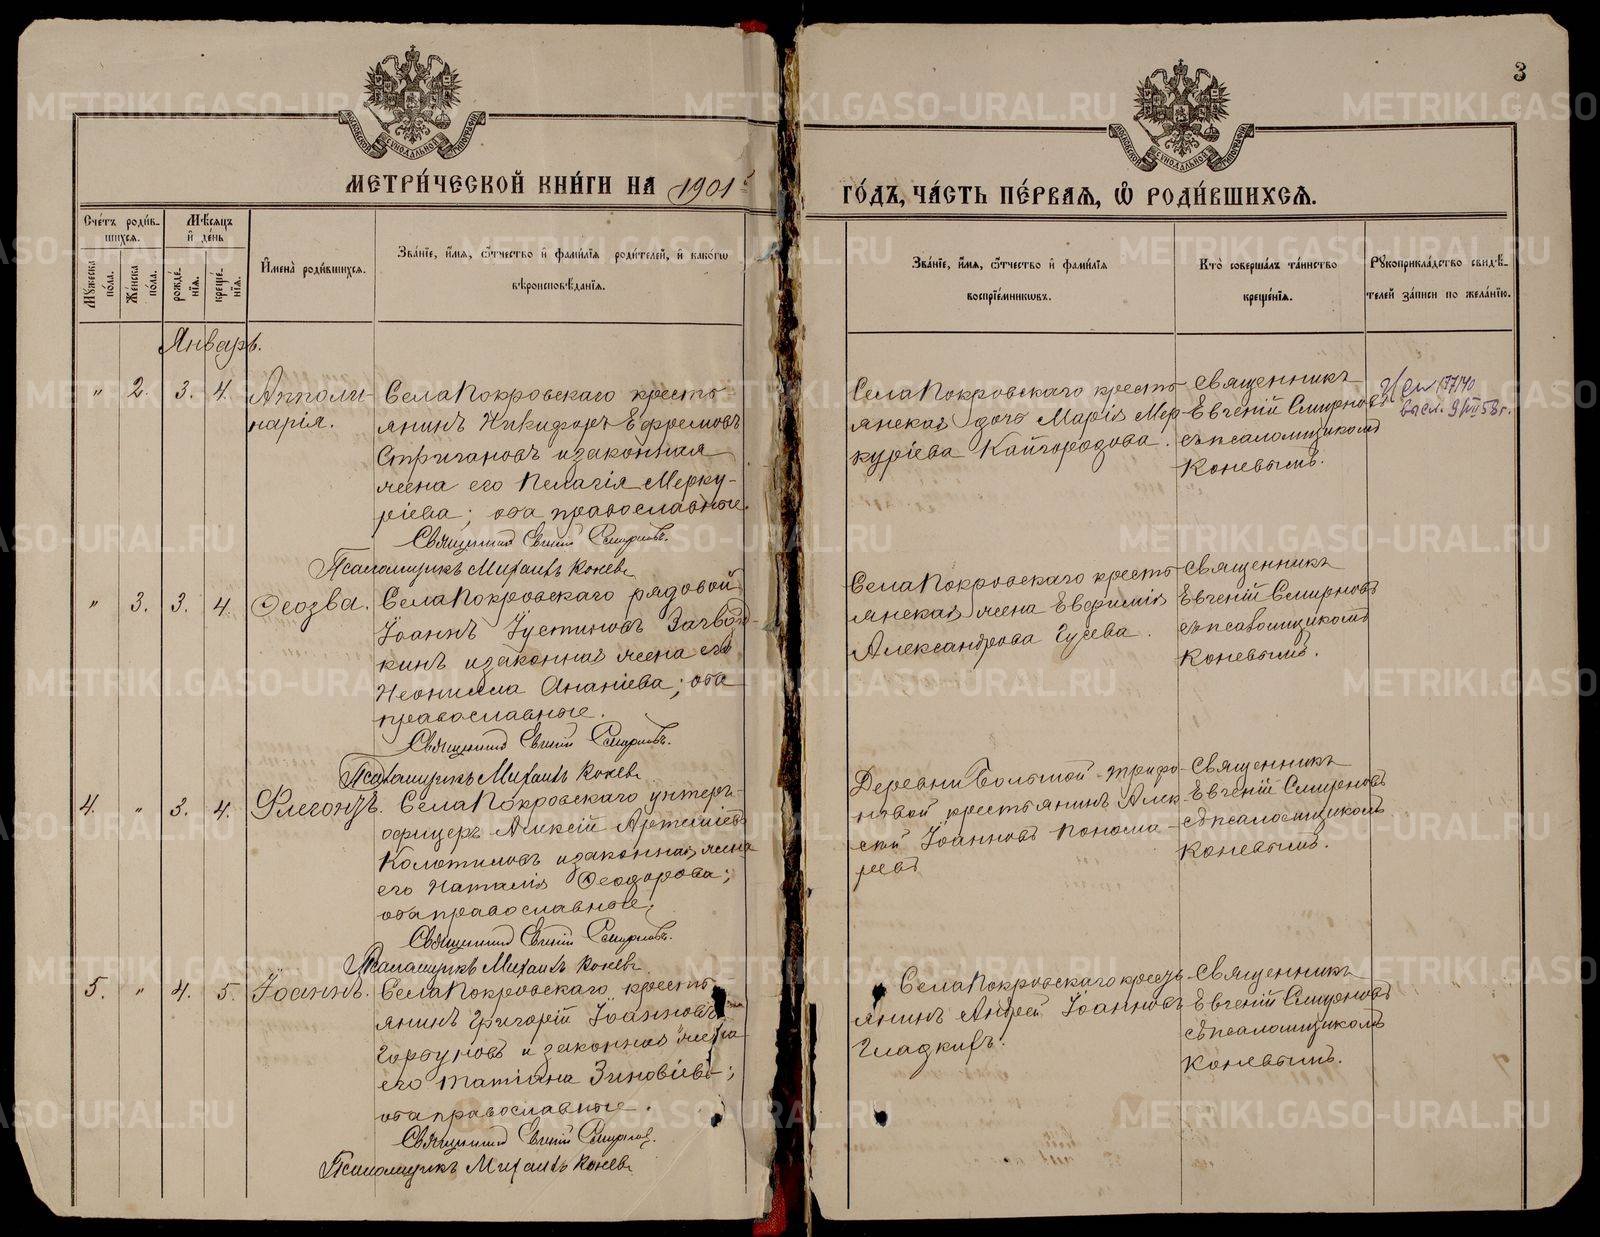 3
МОСКОВСКОЙ СУНОДАЛЬНОЙ ТИПОГРАФІИ
МОСКОВСКОЙ СУНОДАЛЬНОЙ ТИПОГРАФІИ
МЕТРИ́ЧЕСКОЙ КНИ́ГИ НА 1901й
ГО́ДЪ, ЧА́СТЬ ПЕ́РВАЯ, Ѡ҆ РОДИ́ВШИХСЯ.
Сче́тъ роди́в-
шихся.
Му́жеска по́ла.
Же́нска по́ла.
Мѣ́сяцъ
и҆ де́нь
рожде́-
нїя.
креще́-
нїя.
И҆мена̀ роди́вшихся.
Зва́нїе, и҆́мя, ѻ҆́тчество и҆ фами́лїя роди́телей, и҆ како́гѡ
вѣроисповѣ́данїя.
Зва́нїе, и҆́мя, ѻ҆́тчество и҆ фами́лїя
воспрїе́мникѡвъ.
Кто̀ соверша́лъ та́инство
креще́нїя.
Рꙋкоприкла́дство свидѣ́-
телей за́писи по жела́нїю.
Январь.
" 2. 3. 4.
Апполи-
нарія.
Села Покровскаго кресть-
янинъ Никифоръ Ефремовъ
Стригановъ и законная
жена его Пелагія Мерку-
ріева; оба православные.
Священникъ Евгеній Смирновъ.
Псаломщикъ Михаилъ Коневъ
Села Покровскаго кресть-
янская дочь Марія Мер-
куріева Кайгородова.
Священникъ
Евгеній Смирновъ
съ псаломщикомъ
Коневымъ.
" 3. 3. 4.
Ѳеозва.
Села Покровскаго рядовой
Іоаннъ Іустиновъ
кинъ и законная жена его
Неонилла Ананіева; оба
православные.
Священникъ Евгеній Смирновъ.
Псаломщикъ Михаилъ Коневъ
Села Покровскаго кресть-
янская жена Евфимія
Александрова Гусева.
Священникъ
Евгеній Смирновъ
съ псаломщикомъ
Коневымъ.
4. " 3. 4.
Флегонтъ.
Села Покровскаго унтеръ-
офицеръ Алексій Артеміевъ
Колотиловъ и законная жена
его Наталія Ѳеодорова;
оба православные.
Священникъ Евгеній Смирновъ.
Псаломщикъ Михаилъ Коневъ
Деревни Большой-Трифо-
новой крестьянинъ Алек-
сій Іоанновъ Понома-
ревъ
Священникъ
Евгеній Смирновъ
съ псаломщикомъ
Коневымъ.
5. " 4. 5.
Іоаннъ.
Села Покровскаго кресть-
янинъ Григорій Іоанновъ
Горбуновъ и законная жена
его Татіана Зиновіева;
оба православные.
Священникъ Евгеній Смирновъ.
Псаломщикъ Михаилъ Коневъ
Села Покровскаго кресть-
янинъ Андрей Іоанновъ
Гладкихъ.
Священникъ
Евгеній Смирновъ
съ псаломщикомъ
Коневымъ.
METRIKI.GASO-URAL.RU